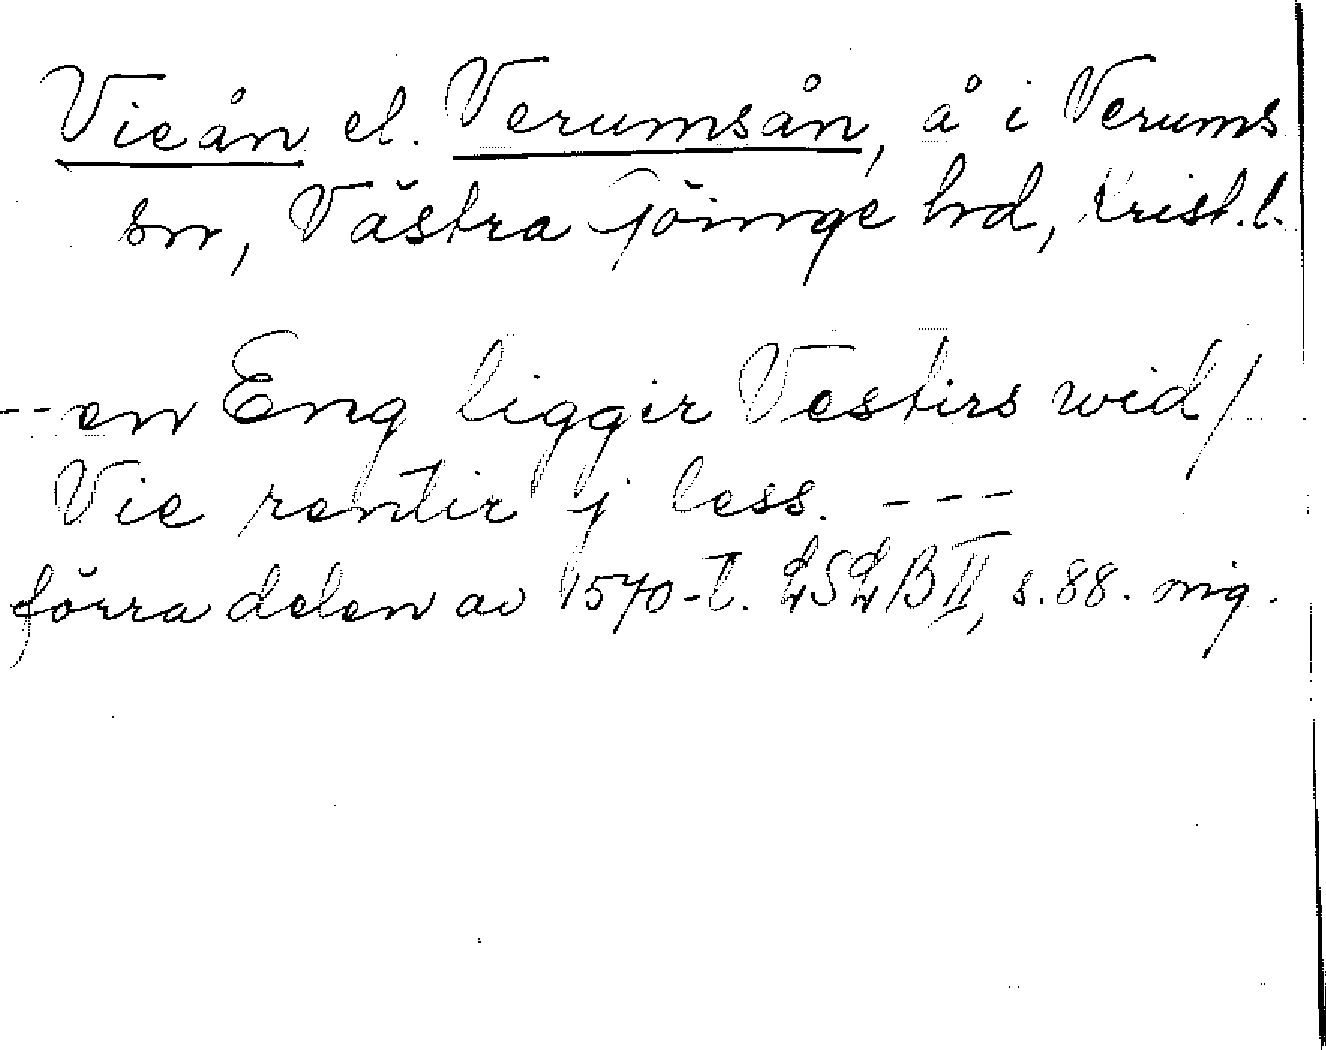 Vieån el. Verumsån, å i Verums
sn, Västra Göinge hd, Krist.l.
--en Eng ligger Vestirs wid/
Vie rentir ij less. ---
förra delen av 1570-t. LSLB II, s.88. mig.